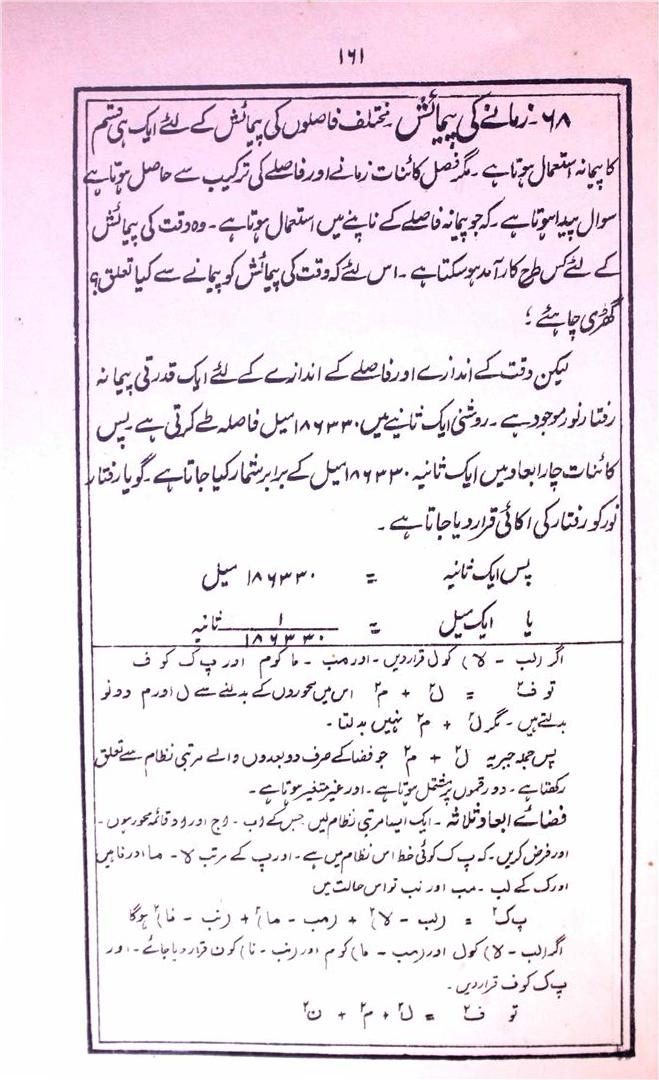 ۱۶۱
۶۸۔ زمانے کی پیمائش۔ مختلف فاصلوں کی پیمائش کے لئے ایک ہی قسم
کا پیمانہ استعمال ہوتا ہے۔ مگر فصل کائنات زمانے اور فاصلے کی ترکیب سے حاصل ہوتا ہے
سوال پیدا ہوتا ہے۔ کہ جو پیمانہ فاصلے کے ناپنے میں استعمال ہوتا ہے۔ وہ وقت کی پیمائش
کے لئے کس طرح کار آمد ہو سکتا ہے۔ اس لئے کہ وقت کی پیمائش کو پیمانے سے کیا تعلق؟
گھڑی چاہئے؛
لیکن وقت کے اندازے اور فاصلے کے اندازے کے لئے ایک قدرتی پیمانہ
رفتار نور موجود ہے۔ روشنی ایک ثانیے میں ۱۸۶۳۳۰ میل فاصلہ طے کرتی ہے۔ پس
کائنات چار ابعاد میں ایک ثانیہ ۱۸۶۳۳۰ میل کے برابر شمار کیا جاتا ہے۔ گویا رفتار
نور کو رفتار کی اکائی قرار دیا جاتا ہے۔
پس ایک ثانیہ = ۱۸۶۳۳۰ میل
یا ایک میل = ۱/۱۸۶۳۳۰ ثانیہ
اگر (لب - لا) کو ل قرار دیں۔ اور مب - ما کو م اور پ ک کو ف
تو ف۲ = ل۲ + م۲ اس میں محوروں کے بدلنے سے ل اور م دونو
بدلتے ہیں۔ مگر ل۲ + م۲ نہیں بدلتا۔
پس جملہ جبریہ ل۲ + م۲ جو فضا کے صرف دو بعدوں والے مرتبی نظام سے تعلق
رکھتا ہے۔ دو رقموں پر مشتمل ہوتا ہے۔ اور غیر متغیر ہوتا ہے۔
فضائے ابعاد ثلاثہ۔ ایک ایسا مرتبی نظام لیں جس کے اب۔ اج اور اد قائمہ محور ہوں۔
اور فرض کریں۔ کہ پ ک کوئی خط اس نظام میں ہے۔ اور پ کے مرتب لا۔ ما اور نا ہیں
اور ک کے لب۔ مب اور نب تو اس حالت میں
پ ک۲ = (لب - لا)۲ + (مب - ما)۲ + (نب - نا)۲ ہوگا
اگر (لب - لا) کو ل اور (مب - ما) کو م اور (نب - نا) کو ن قرار دیا جائے۔ اور
پ ک کو ف قرار دیں۔
تو ف۲ = ل۲ + م۲ + ن۲